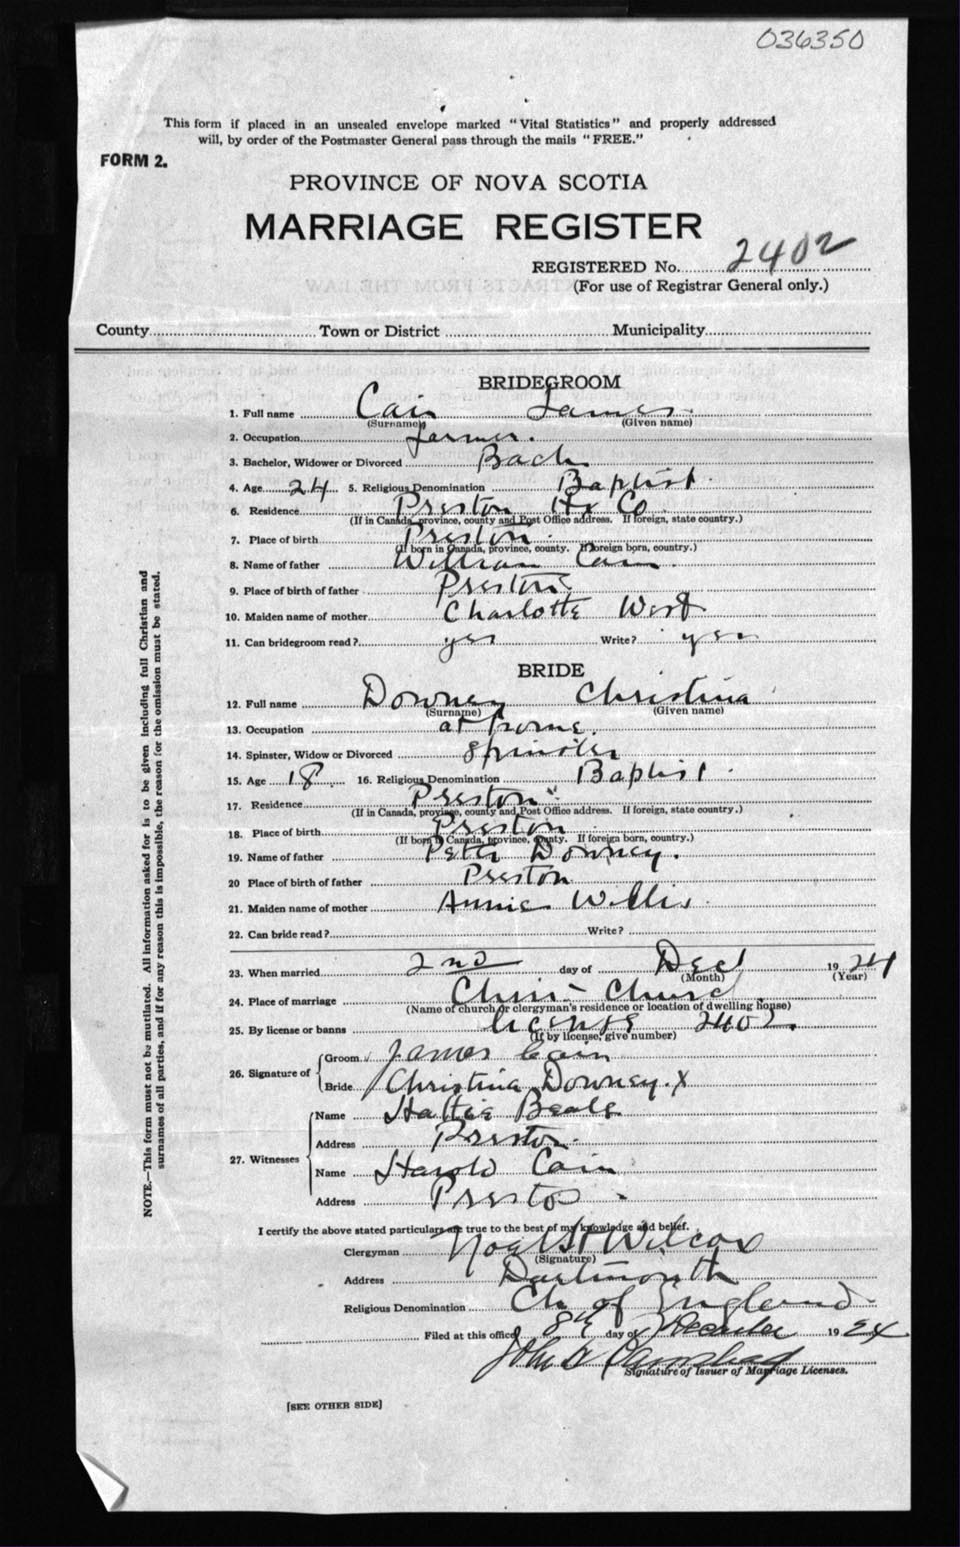 036350
This form if placed in an unsealed envelope marked "Vital Statistics" and properly addressed
will, by order of the Postmaster General pass through the mails "FREE."
FORM 2.
PROVINCE OF NOVA SCOTIA
MARRIAGE REGISTER
REGISTERED No. 2402
(For use of Registrar General only.)
County Town or District Municipality
BRIDEGROOM
1. Full name Cain James
(Surname) (Given name)
2. Occupation farmer.
3. Bachelor, Widower or Divorced Bach
4. Age 24 5. Religious Denomination Baptist
6. Residence Preston Hx Co.
(If in Canada, province, county and Post Office address. If foreign, state country.)
7. Place of birth Preston.
(If born in Canada, province, county. If foreign born, country.)
8. Name of father William Cain.
9. Place of birth of father Preston
10. Maiden name of mother Charlotte West
11. Can bridegroom read? yes Write? yes
BRIDE
12. Full name Downey Christina
(Surname) (Given name)
13. Occupation at home.
14. Spinster, Widow or Divorced Spinster
15. Age 18 16. Religious Denomination Baptist.
17. Residence Preston
(If in Canada, province, county and Post Office address. If foreign, state country.)
18. Place of birth Preston
(If born in Canada, province, county. If foreign born, country.)
19. Name of father Peter Downey.
20 Place of birth of father Preston
21. Maiden name of mother Annie Willis.
22. Can bride read? Write?
23. When married 2nd day of Dec 1924
(Month) (Year)
24. Place of marriage Christ Church
(Name of church or clergyman's residence or location of dwelling house)
25. By license or banns license 2402.
(If by license, give number)
26. Signature of
Groom James Cain
Bride Christina Downey. X
27. Witnesses
Name Hattie Beals
Address Preston.
Name Harold Cain
Address Preston
I certify the above stated particulars are true to the best of my knowledge and belief.
Clergyman Noel Wilcox
(Signature)
Address Dartmouth
Religious Denomination Ch of England
Filed at this office 8th day of December 1924
John
Signature of Issuer of Marriage Licenses.
[SEE OTHER SIDE]
NOTE.—This form must not be mutilated. All information asked for is to be given including full Christian and
surnames of all parties, and if for any reason this is impossible, the reason for the omission must be stated.